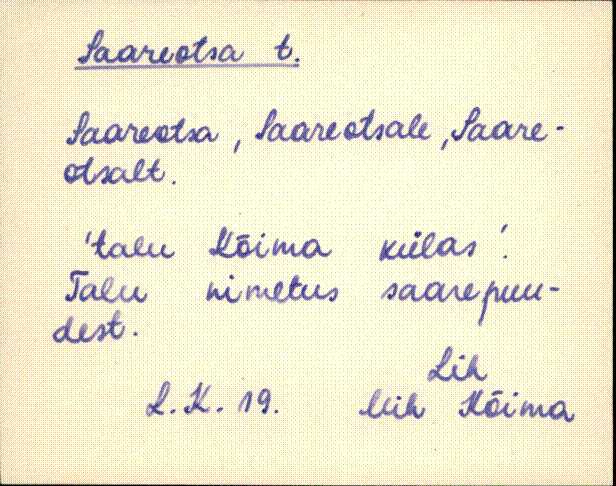 Saareotsa t.
Saareotsa, Saareotsale, Saare-
otsalt.
'talu Kõima külas'.
Talu nimetus saarepuu-
dest.
Lih
L.K. 19. Mih Kõima